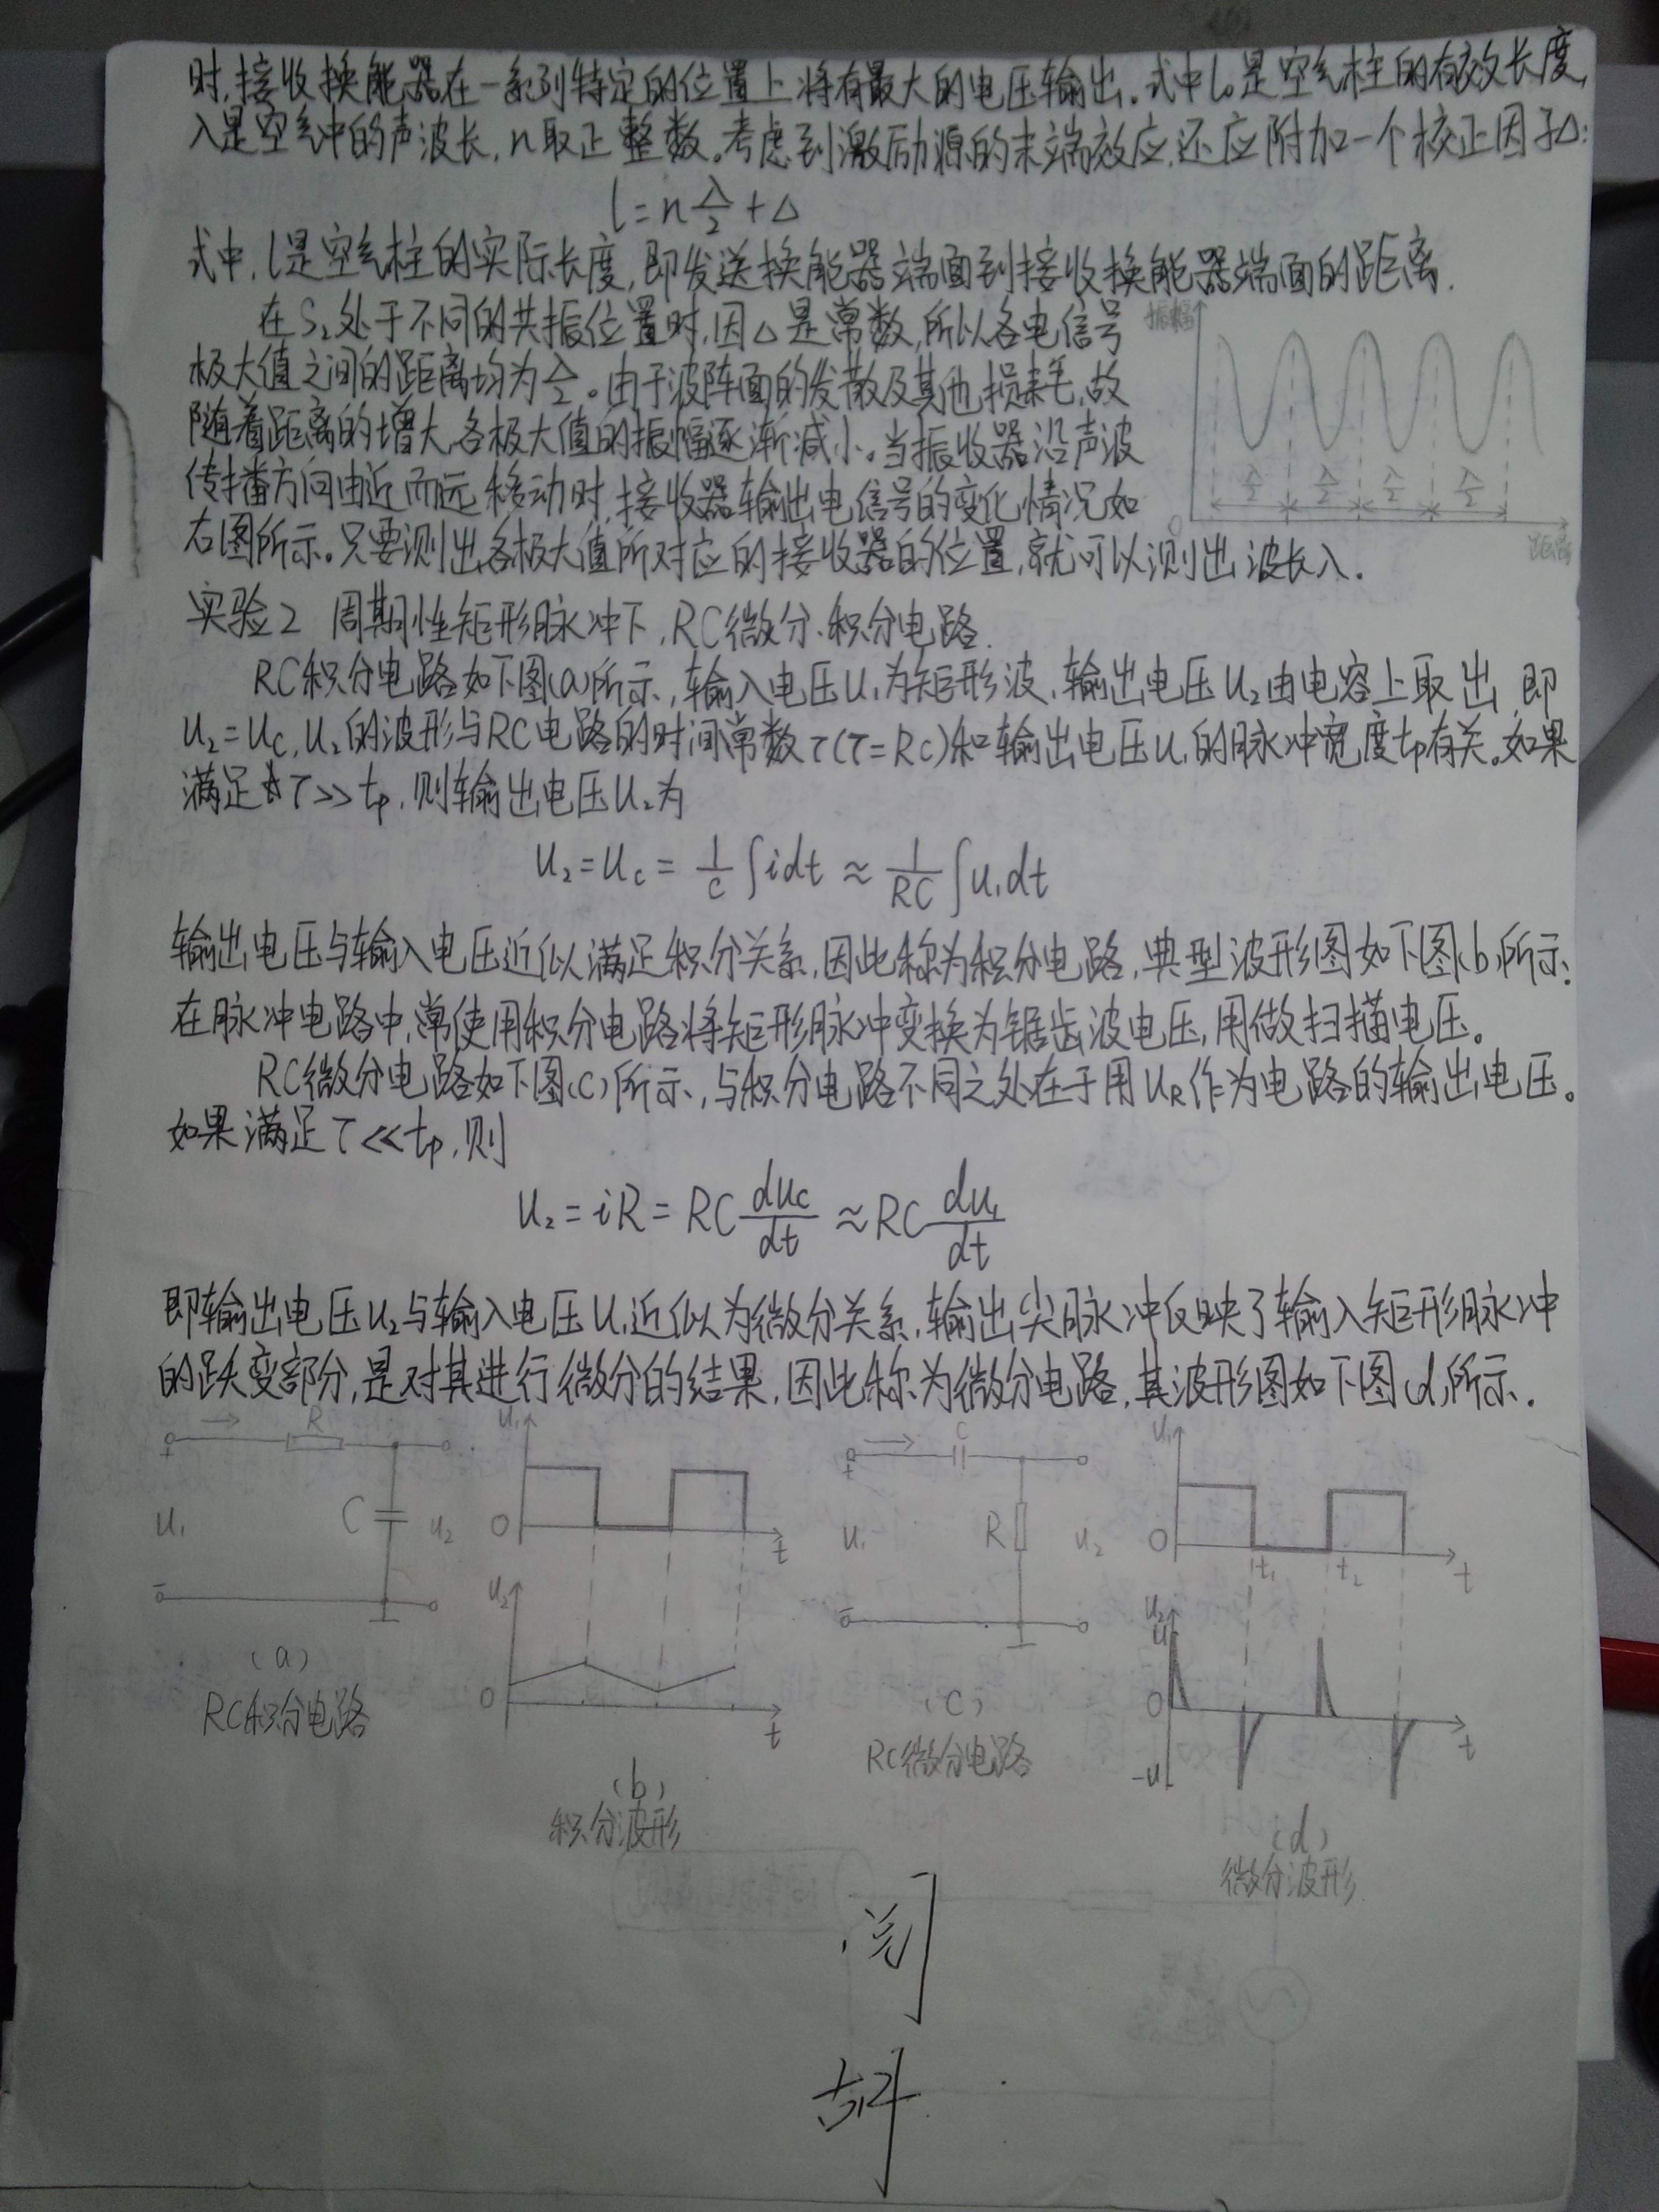 时,接收换能器在一系列特定的位置上将有最大的电压输出.式中l₀是空气柱的有效长度,
λ是空气中的声波长,n取正整数。考虑到激励源的末端效应,还应附加一个校正因子Δ:
l=n λ/2 +Δ
式中,l是空气柱的实际长度,即发送换能器端面到接收换能器端面的距离.
在S₂处于不同的共振位置时,因Δ是常数,所以各电信号
极大值之间的距离均为λ/2。由于波阵面的发散及其他损耗,故
随着距离的增大,各极大值的振幅逐渐减小。当振收器沿声波
传播方向由近而远移动时,接收器输出电信号的变化情况如
右图所示。只要测出各极大值所对应的接收器的位置,就可以测出波长λ.
振幅
λ/2 λ/2 λ/2 λ/2
0
距离
实验2 周期性矩形脉冲下,RC微分、积分电路.
RC积分电路如下图(a)所示,输入电压U₁为矩形波,输出电压U₂由电容上取出,即
U₂=Uc,U₂的波形与RC电路的时间常数τ(τ=RC)和输出电压U₁的脉冲宽度tp有关。如果
满足τ>>tp,则输出电压U₂为
U₂=Uc= 1/C ∫idt ≈ 1/RC ∫u₁dt
输出电压与输入电压近似满足积分关系,因此称为积分电路,典型波形图如下图(b)所示.
在脉冲电路中,常使用积分电路将矩形脉冲变换为锯齿波电压,用做扫描电压。
RC微分电路如下图(C)所示,与积分电路不同之处在于用UR作为电路的输出电压。
如果满足τ<<tp,则
U₂=iR=RC duc/dt ≈RC du₁/dt
即输出电压U₂与输入电压U₁近似为微分关系,输出尖脉冲反映了输入矩形脉冲
的跃变部分,是对其进行微分的结果,因此称为微分电路,其波形图如下图(d)所示.
R
+
U₁
C
U₂
-
(a)
RC积分电路
U₁
0
t
U₂
0
t
(b)
积分波形
C
+
U₁
R
U₂
-
(C)
RC微分电路
U₁
0
t₁
t₂
t
U₂
U
0
-U
t
(d)
微分波形